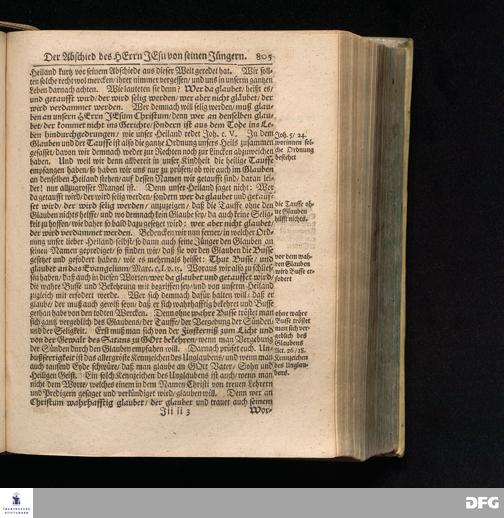 Der Abschied des HErrn JEsu von seinen Jüngern. 805
Heiland kurtz vor seinem Abschiede aus dieser Welt geredet hat. Wir soll-
ten solche recht wol mercken/ ihrer nimmer vergessen/ und uns in unserm gantzen
Leben darnach achten. Wie lauteten sie denn? Wer da glaubet/ heißt es/
und getaufft wird/ der wird selig werden/ wer aber nicht gläubet/ der
wird verdammet werden. Wer demnach will selig werden/ muß glau-
ben an unsern HErrn JEsum Christum/ denn wer an denselben glau-
bet/ der kommet nicht ins Gerichte/ sondern ist aus dem Tode ins Le-
ben hindurchgedrungen/ wie unser Heiland redet Joh. c. V. In dem
Glauben und der Tauffe ist also die gantze Ordnung unsers Heils zusammen
gefasset/ davon wir demnach weder zur Rechten noch zur Lincken abzuweichen
haben. Und weil wir denn allbereit in unser Kindheit die heilige Tauffe
empfangen haben/ so haben wir uns nur zu prüfen/ ob wir auch im Glauben
an denselben Heiland stehen/ auf dessen Namen wir getaufft sind/ daran lei-
der! nur allzugrosser Mangel ist. Denn unser Heiland saget nicht: Wer
da getaufft wird/ der wird selig werden/ sondern wer da glaubet und getauf-
fet wird/ der wird selig werden/ anzuzeigen/ daß die Tauffe ohne den
Glauben nichts helffe/ und wo demnach kein Glaube sey/ da auch keine Selig-
keit zu hoffen/ wie daher so bald dazu gesetzet wird: wer aber nicht glaubet/
der wird verdammet werden. Bedencken wir nun ferner/ in welcher Ord-
nung unser lieber Heiland selbst/ so dann auch seine Jünger den Glauben an
seinen Namen geprediget/ so finden wir/ daß sie vor den Glauben die Busse
gesetzet und gefodert haben/ wie es mehrmals heisset: Thut Busse/ und
glaubet an das Evangelium/ Marc. c. I. v. 15. Woraus wir also zu schlies-
sen haben/ daß auch in diesen Worten/ wer da glaubet und getauffet wird/
die wahre Busse und Bekehrung mit begriffen sey/ und von unserm Heiland
zugleich mit erfodert werde. Wer sich demnach dafür halten will/ daß er
glaube/ der muß auch gewiß seyn/ daß er sich wahrhafftig bekehret und Busse
gethan habe von den todten Wercken. Denn ohne wahre Busse tröstet man
sich gantz vergeblich des Glaubens/ der Tauffe/ der Vergebung der Sünden/
und der Seligkeit. Erst muß man sich von der Finsterniß zum Licht und
von der Gewalt des Satans zu GOtt bekehren/ wenn man Vergebung
der Sünden durch den Glauben empfahen will. Darnach prüfet euch. Un-
bußfertigkeit ist das allergröste Kennzeichen des Unglaubens/ und wenn man
auch tausend Eyde schwüre/ daß man glaube an GOtt Vater/ Sohn und
Heiligen Geist. Ein solch Kennzeichen des Unglaubens ist auch/ wenn man
nicht dem Worte/ welches einem in dem Namen Christi von treuen Lehrern
und Predigern gesaget und verkündiget wird/ glauben will. Denn wer an
Christum wahrhafftig glaubet/ der glaubet und trauet auch seinem
Jii ii 3 Wor-
Joh. 5/ 24.
worinnen sol-
che Ordnung
bestehet
die Tauffe oh-
ne Glauben
hilfft nichts.
vor dem wah-
ren Glauben
wird Busse er-
fodert
ohne wahre
Busse tröstet
man sich ver-
geblich des
Glaubens
Act. 26/ 18.
Kennzeichen
des Unglau-
bens.
FRANCKESCHE
STIFTUNGEN
DFG